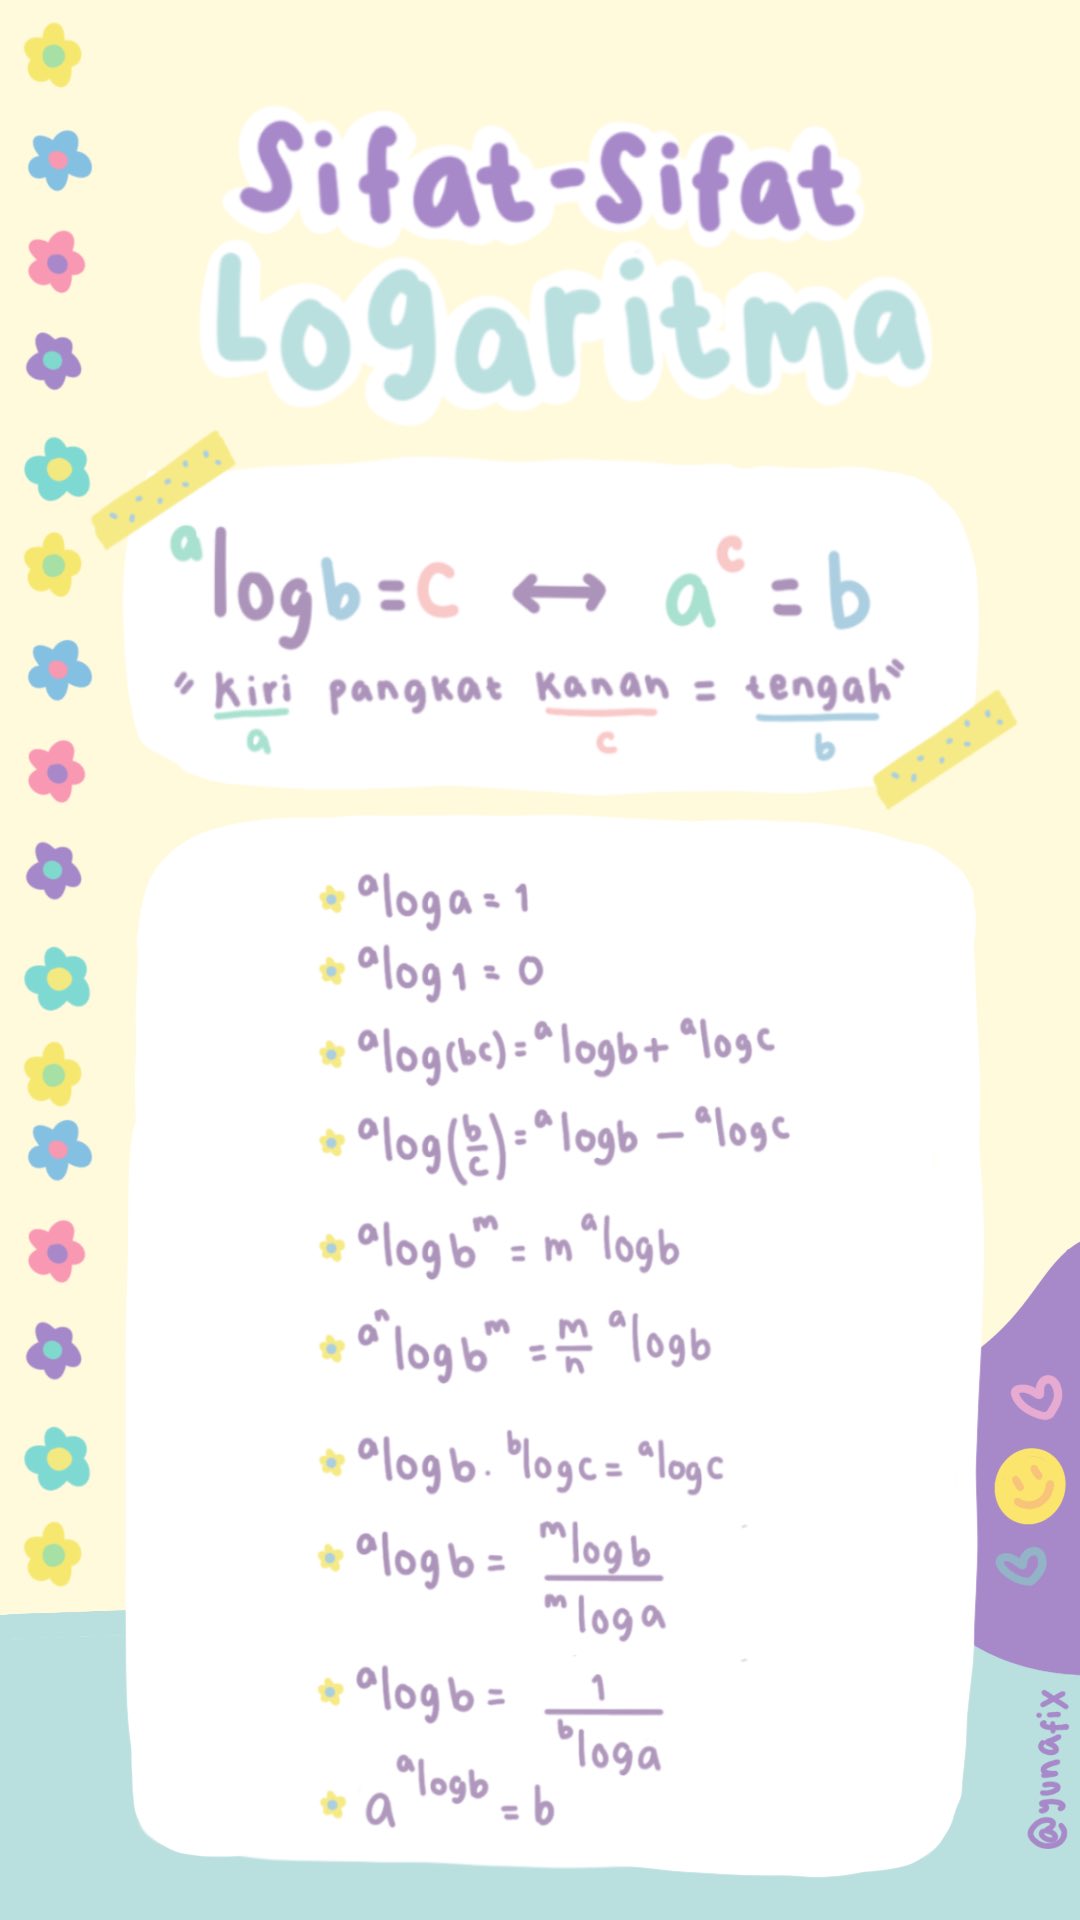 Sifat-Sifat
Logaritma
ᵃlog b = c ↔ aᶜ = b
"kiri pangkat kanan = tengah"
a c b
ᵃlog a = 1
ᵃlog 1 = 0
ᵃlog (bc) = ᵃlog b + ᵃlog c
ᵃlog (b/c) = ᵃlog b - ᵃlog c
ᵃlog bᵐ = m ᵃlog b
aⁿlog bᵐ = m/n ᵃlog b
ᵃlog b · ᵇlog c = ᵃlog c
ᵃlog b = ᵐlog b / ᵐlog a
ᵃlog b = 1 / ᵇlog a
a^(ᵃlog b) = b
@yunafix